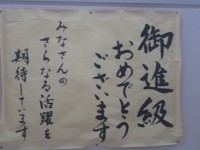 御進級
おめでとう
ございます
みなさんの
さらなる活躍を
期待しています